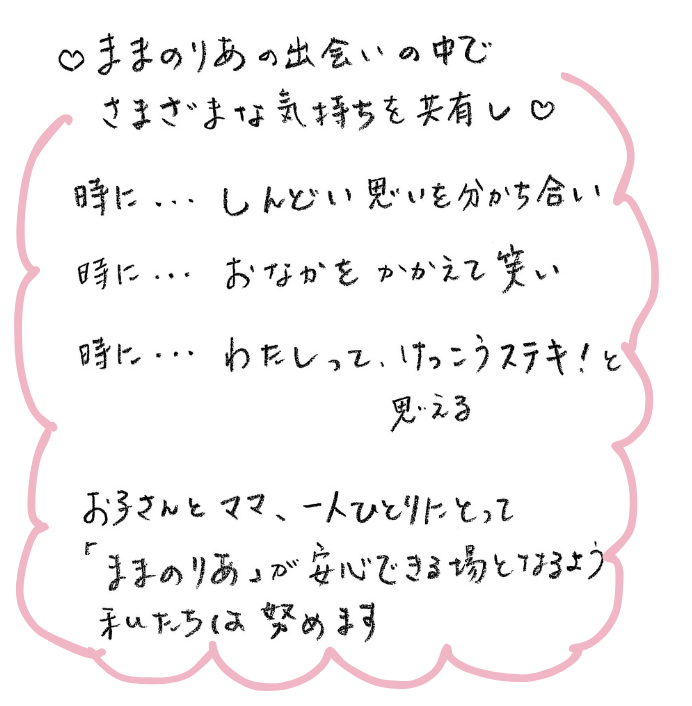 ♡ ままのりあの出会いの中で
さまざまな気持ちを共有し ♡
時に... しんどい思いを分かち合い
時に... おなかをかかえて笑い
時に... わたしって、けっこうステキ!と
思える
お子さんとママ、一人ひとりにとって
「ままのりあ」が安心できる場となるよう
私たちは努めます